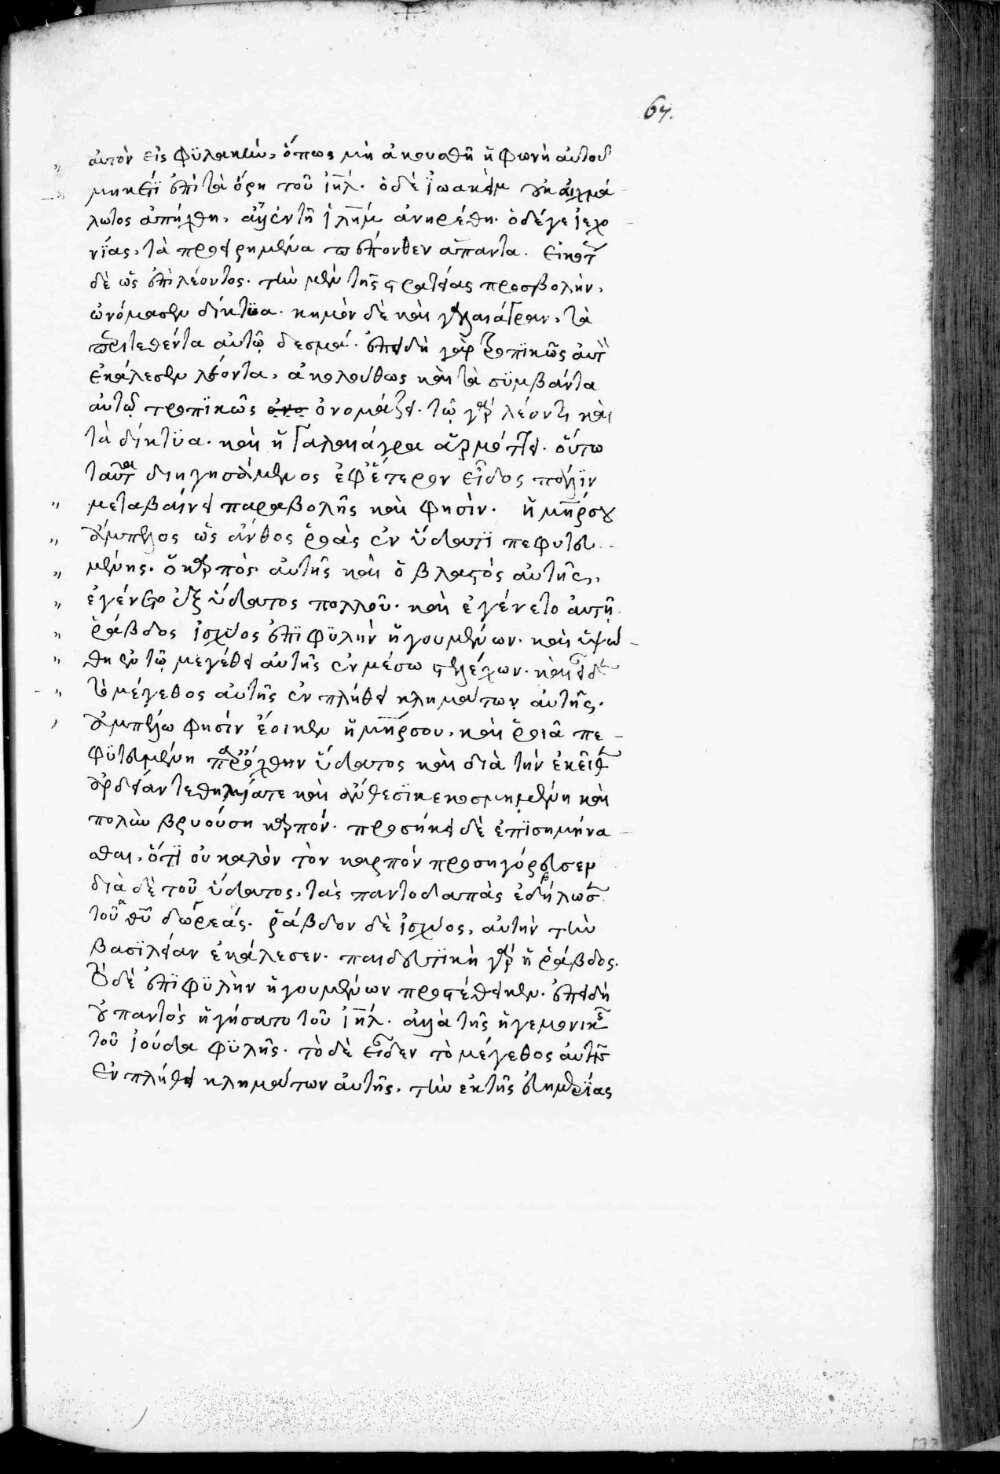 67.
αὐτὸν εἰς φϋλακὴν, ὅπως μὴ ἀκουσθῆ ἡ φωνὴ αὐτοῦ
μηκέτϊ ἐπὶ τὰ ὄρη τοῦ ἰη̅λ. ὁ δὲ ϊωακεὶμ οὐκ αἰχμά
λωτος ἀπήχθη, ἀλλ' ἐν τῆ ἰλη̅μ ἀνηρέθη. ὁ δέγε ἰεχο
νίας, τὰ προειρημένα πέπονθεν ἅπαντα. εἰκότ
δὲ ὡς ἐπὶ λέοντος. τὴν μὲν τῆς στρατείας προσβολὴν,
ὠνόμασεν δίκτϋα. κημὸν δὲ καὶ γαλαιάγραν, τὰ
περιτεθέντα αὐτῷ δεσμά. ἐπειδὴ γὰρ τροπϊκῶς αὐτὸν
ἐκάλεσεν λέοντα, ἀκολούθως καὶ τὰ σϋμβάντα
αὐτῷ τροπϊκῶς ὀνομάζει. τῷ γὰρ λέοντι καὶ
τὰ δίκτϋα. καὶ ἡ γαλαιάγρα ἁρμόττει. οὕτω
ταῦτα διηγησάμενος ἐφ' ἕτερον εἶδος πάλϊν
μεταβαίνει παραβολῆς καὶ φησὶν. ἡ μη̅ρ σου
ἄμπελος ὡς ἄνθος ῥοᾶς ἐν ὕδατϊ πεφυτευ
μένης. ὁ καρπὸς αὐτῆς καὶ ὁ βλαστὸς αὐτῆς,
ἐγένετο ἐξ ὕδατος πολλοῦ. καὶ ἐγένετο αὐτῆ
ῥάβδος ἰσχύος ἐπϊ φϋλὴν ἡγουμένων. καὶ ὑψώ
θη ἐν τῷ μεγέθει αὐτῆς ἐν μέσω στελέχων. καὶ εἶδε
τὸ μέγεθος αὐτῆς ἐν πλήθει κλημάτων αὐτῆς.
ἀμπέλω φησὶν ἔοικεν ἡ μη̅ρ σου, καὶ ῥοιᾶ πε
φϋτευμένη ὕδατος καὶ διὰ τὴν ἐκεῖθεν
ἀρδείαν τεθηλυίατε καὶ ἄνθεσϊ κεκοσμημένη καὶ
πολὺν βρυούση καρπόν. προσήκει δὲ ἐπϊσημήνα
σθαι, ὅτϊ οὐ καλὸν τὸν καρπὸν προσηγόρευσεν
διὰ δὲ τοῦ ὕδατος, τὰς παντοδαπὰς ἐδήλωσε
τοῦ θυ̅ δωρεάς. ῥάβδον δὲ ἰσχύος, αὐτὴν τὴν
βασϊλείαν ἐκάλεσεν. παιδευτϊκὴ γὰρ ἡ ῥάβδος.
τὸ δὲ ἐπϊ φϋλὴν ἡγουμένων προστέθεικεν. ἐπειδὴ
οὐ παντὸς ἡγήσατο τοῦ ἰη̅λ. ἀλλὰ τῆς ἡγεμονικῆς
τοῦ ἰούδα φϋλῆς. τὸ δὲ εἶδεν τὸ μέγεθος αὐτῆς
ἐν πλήθει κλημάτων αὐτῆς, τὴν ἐκ τῆς εὐημερίας